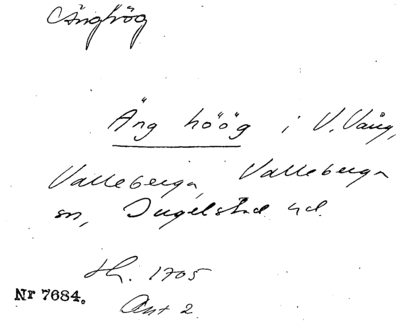 Änghög
Äng höög i V. Vång,
Valleberga, Valleberga
sn, Ingelstad hd.
Lh. 1705
Nr 7684.
Akt 2